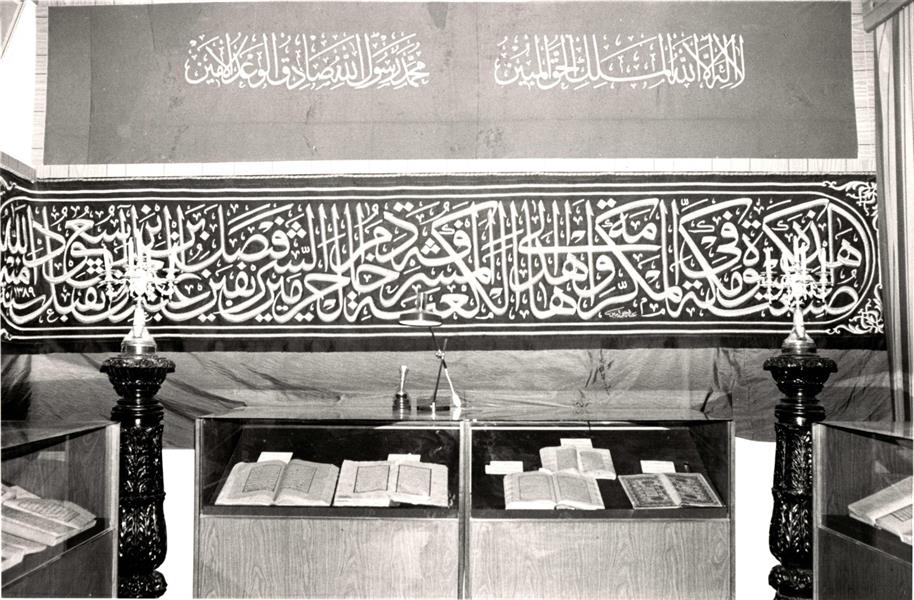 لا إله إلا الله الملك الحق المبين محمد رسول الله صادق الوعد الأمين
هذه الكسوة صنعت في مكة المكرمة وأهداها إلى الكعبة المشرفة خادم الحرمين الشريفين فيصل بن عبد العزيز آل سعود تقبل الله منه ١٣٨٩